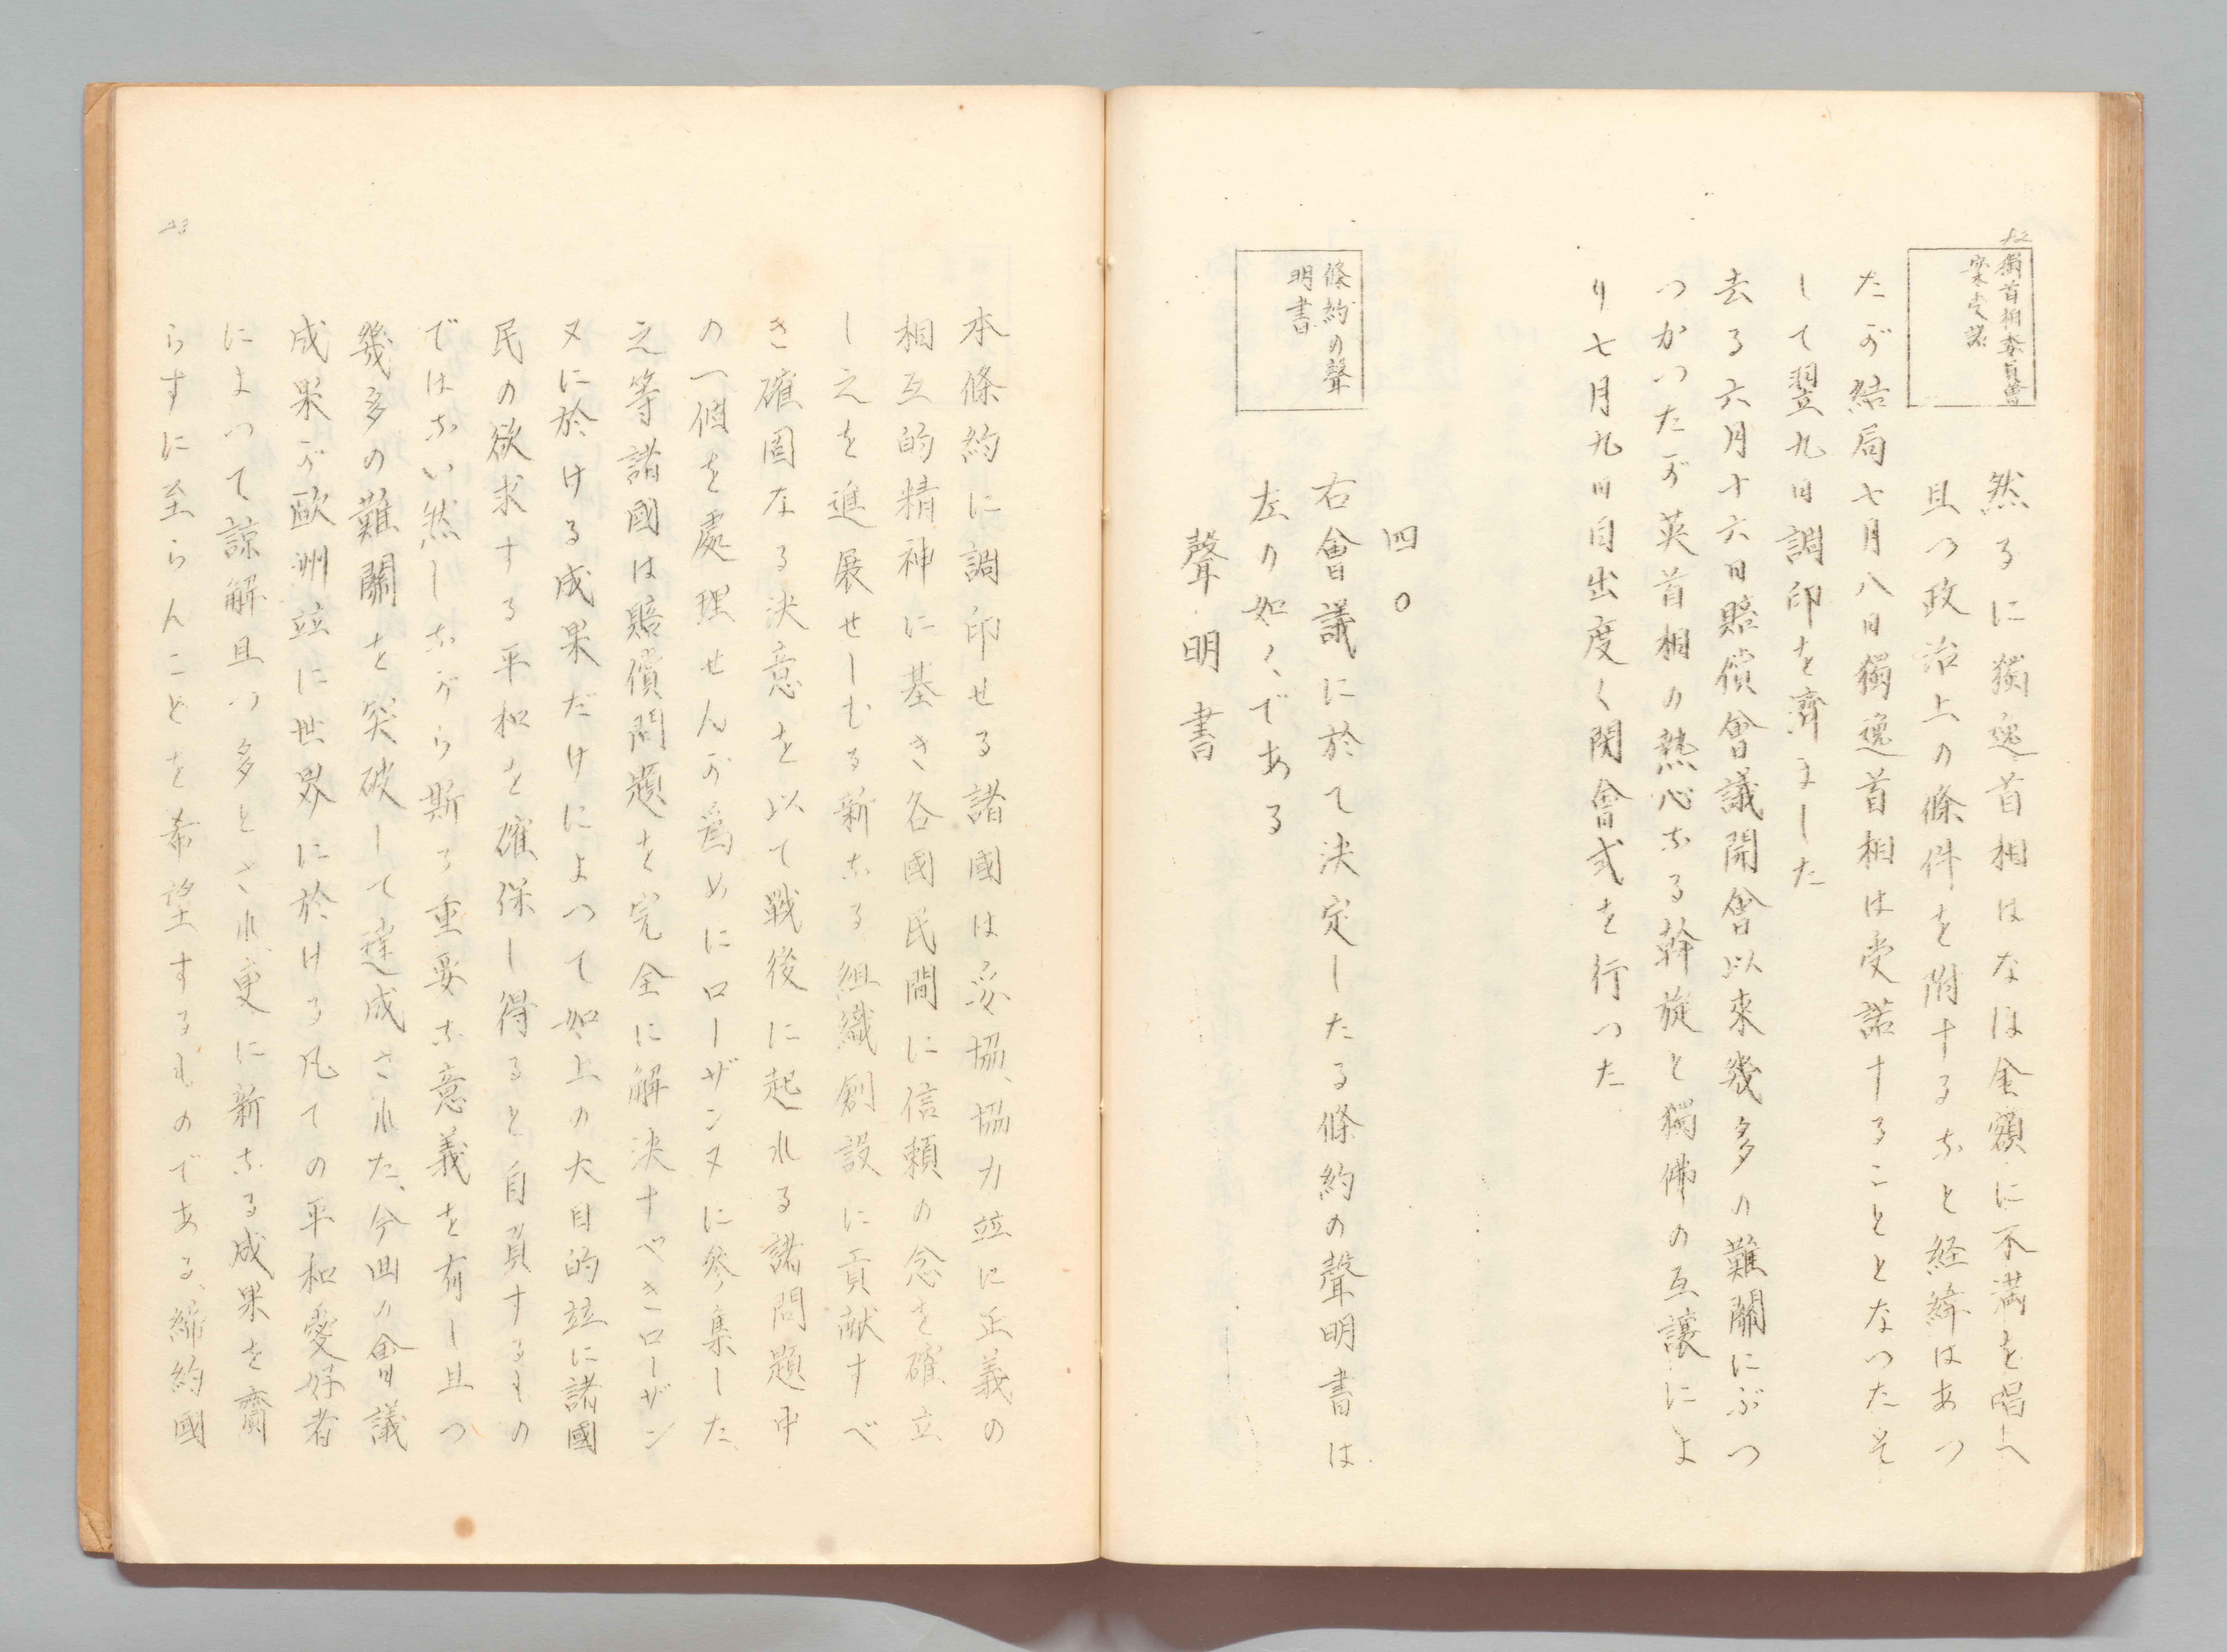 獨首相委員會
案受諾
然るに獨逸首相はなほ金額に不満を唱へ
且つ政治上の條件を附するなと経緯はあつ
たが結局七月八日獨逸首相は受諾することとなつたそ
して翌九日調印を濟ました
去る六月十六日賠償會議開會以來幾多の難關にぶつ
つかつたが英首相の熱心なる斡旋と獨佛の互讓によ
り七月九日目出度く閉會式を行つた
四〇
條約の聲
明書
右會議に於て決定したる條約の聲明書は
左の如くである
聲明書
本條約に調印せる諸國は妥協、協力竝に正義の
相互的精神に基き各國民間に信頼の念を確立
し之を進展せしむる新なる組織創設に貢献すべ
き確固なる決意を以て戰後に起れる諸問題中
の一個を處理せんが爲めにローザンヌに參集した、
之等諸國は賠償問題を完全に解決すべきローザン
ヌに於ける成果だけによつて如上の大目的竝に諸國
民の欲求する平和を確保し得ると自負するもの
ではない然しながら斯る重要な意義を有し且つ
幾多の難關を突破して達成された、今囬の會議
成果が歐洲竝に世界に於ける凡ての平和愛好者
によつて諒解且つ多とされ、更に新なる成果を齎
らすに至らんことを希望するものである、締約國